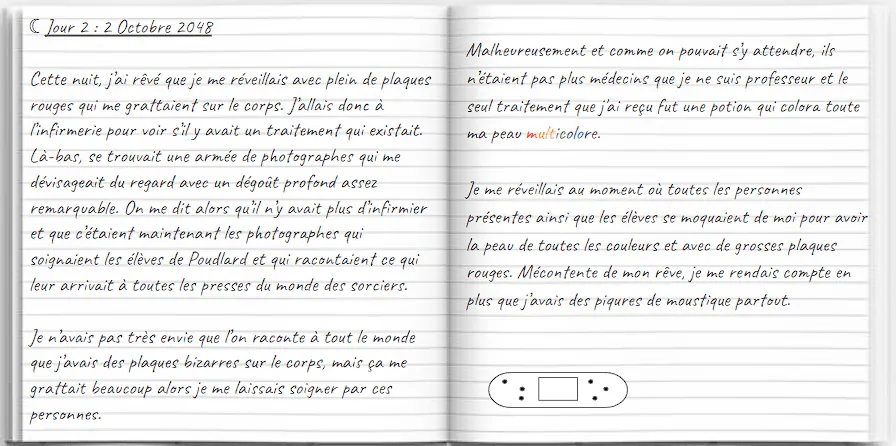 ☾ Jour 2 : 2 Octobre 2048
Cette nuit, j'ai rêvé que je me réveillais avec plein de plaques
rouges qui me grattaient sur le corps. J'allais donc à
l'infirmerie pour voir s'il y avait un traitement qui existait.
Là-bas, se trouvait une armée de photographes qui me
dévisageait du regard avec un dégoût profond assez
remarquable. On me dit alors qu'il n'y avait plus d'infirmier
et que c'étaient maintenant les photographes qui
soignaient les élèves de Poudlard et qui racontaient ce qui
leur arrivait à toutes les presses du monde des sorciers.
Je n'avais pas très envie que l'on raconte à tout le monde
que j'avais des plaques bizarres sur le corps, mais ça me
grattait beaucoup alors je me laissais soigner par ces
personnes.
Malheureusement et comme on pouvait s'y attendre, ils
n'étaient pas plus médecins que je ne suis professeur et le
seul traitement que j'ai reçu fut une potion qui colora toute
ma peau multicolore.
Je me réveillais au moment où toutes les personnes
présentes ainsi que les élèves se moquaient de moi pour avoir
la peau de toutes les couleurs et avec de grosses plaques
rouges. Mécontente de mon rêve, je me rendais compte en
plus que j'avais des piqures de moustique partout.